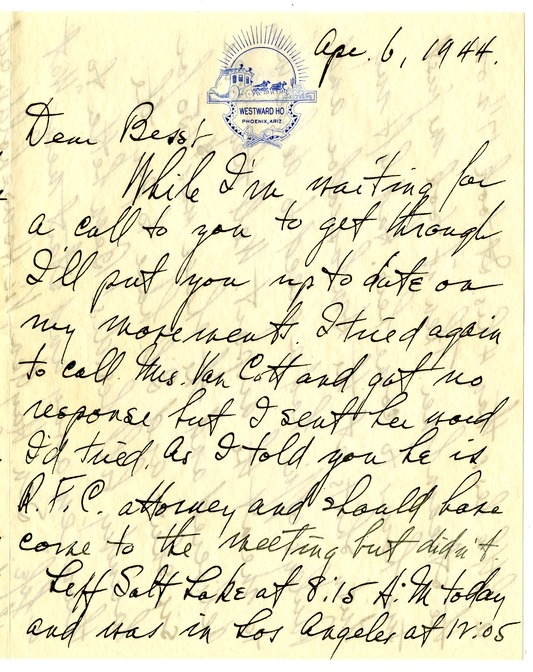 Apr. 6, 1944.
WESTWARD HO
PHOENIX, ARIZ
Dear Bess:
While I'm waiting for
a call to you to get through
I'll put you up to date on
my movements. I tried again
to call Mrs. Van Cott and got no
response but I sent her word
I'd tried. As I told you he is
R.F.C. attorney and should have
come to the meeting but didn't.
Left Salt Lake at 8:15 A.M today
and was in Los Angeles at 12:05